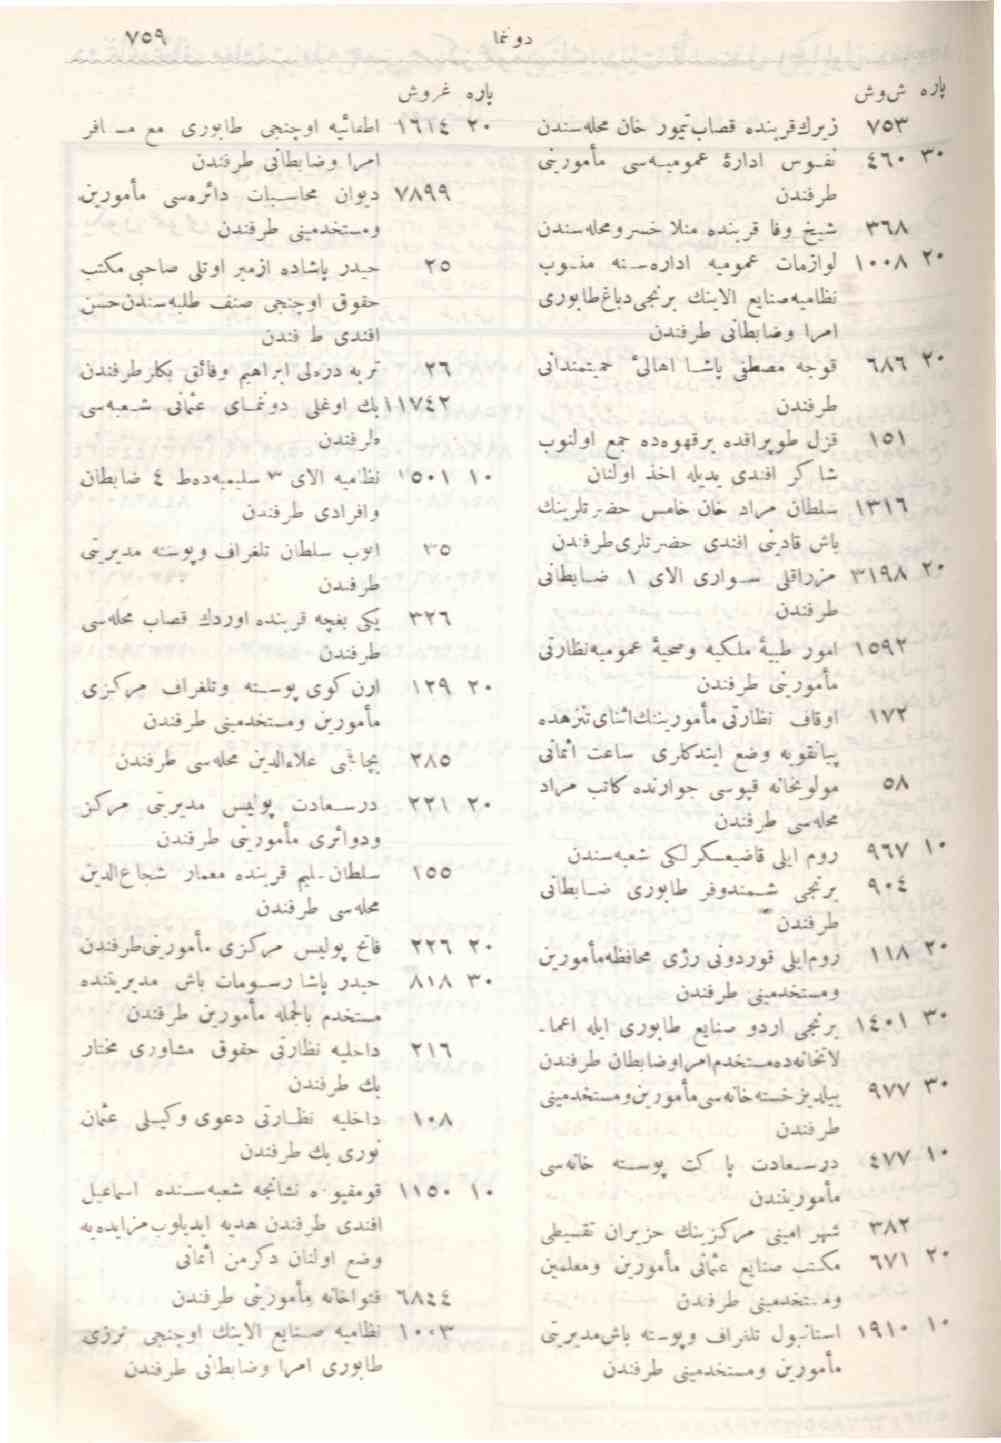 دونما ٧٥٩
پاره غروش
٧٥٣ زيرك قربنده قصاب تيمور خان محله سندن
٣٠ ٤٦٠ نفوس ادارۀ عموميه سى مأمورينى
طرفندن
٣٦٨ شيخ وفا قربنده منلا خسرو محله سندن
٢٠ ١٠٠٨ لوازمات عموميه اداره سنه منسوب
نظاميه صنايع الاينك برنجى دباغ طابورى
امرا وضابطانى طرفندن
٢٠ ٦٨٦ قوجه مصطفى پاشا اهالئ حميتمندانى
طرفندن
١٥١ قزل طوپراقده برقهوه ده جمع اولنوب
شاكر افندى يديله اخذ اولنان
١٣١٦ سلطان مراد خان خامس حضرتلرينك
باش قادينى افندى حضرتلرى طرفندن
٢٠ ٣١٩٨ مزراقلى سوارى الاى ١ ضابطانى
طرفندن
١٥٩٢ امور طبيۀ ملكيه وصحيۀ عموميه نظارتى
مأمورينى طرفندن
١٧٢ اوقاف نظارتى مأمورينك اثناى تنزهده
پيانقويه وضع ايتدكلرى ساعت اثمانى
٥٨ مولوبخانه قپوسى جوارنده كاتب مراد
محله سى طرفندن
١٠ ٩٦٧ روم ايلى قاضيعسكرلكى شعبه سندن
٩٠٤ برنجى شمندوفر طابورى ضابطانى
طرفندن
٢٠ ١١٨ روم ايلى قوردونى رژى محافظه مأمورين
ومستخدمينى طرفندن
٣٠ ١٤٠١ برنجى اردو صنايع طابورى ايله اعما-
لاتخانه ده مستخدم امرا وضابطان طرفندن
٣٠ ٩٧٧ ييلديز خسته خانه سى مأمورين ومستخدمينى
طرفندن
١٠ ٤٧٧ درسعادت پاكت پوسته خانه سى
مأموريتندن
٣٨٢ شهر امينى مركزينك حزيران تقسيطى
٢٠ ٦٧١ مكتب صنايع عثمانى مأمورين ومعلمين
ومستخدمينى طرفندن
١٠ ١٩١٠ استانبول تلغراف وپوسته باش مديريتى
مأمورين ومستخدمينى طرفندن
پاره غروش
٢٠ ١٦١٤ اطفائيه اوچنجى طابورى مع مسافر
امرا وضابطانى طرفندن
٧٨٩٩ ديوان محاسبات دائره سى مأمورين
ومستخدمينى طرفندن
٢٥ حيدر پاشاده ازمير اوتلى صاحبى مكتب
حقوق اوچنجى صنف طلبه سندن حسن
افندى طرفندن
٢٦ تربه دره لى ابراهيم وفائق بكلر طرفندن
١١٧٤٢ بك اوغلى دونماى عثمانى شعبه سى
طرفندن
١٠ ١٥٠١ نظاميه الاى ٣ سليميه ده ط ٤ ضابطان
وافرادى طرفندن
٣٥ ايوب سلطان تلغراف وپوسته مديريتى
طرفندن
٣٢٦ يكى بغچه قربنده اوردك قصاب محله سى
طرفندن
٢٠ ١٢٩ ارن كوى پوسته وتلغراف مركزى
مأمورين ومستخدمينى طرفندن
٢٨٥ بچاقچى علاءالدين محله سى طرفندن
٢٠ ٢٢١ درسعادت پوليس مديريتى مركز
ودوائرى مأمورينى طرفندن
١٥٥ سلطان سليم قربنده معمار شجاع الدين
محله سى طرفندن
٢٠ ٢٢٦ فاتح پوليس مركزى مأمورينى طرفندن
٣٠ ٨١٨ حيدر پاشا رسومات باش مديريتنده
مستخدم بالجمله مأمورين طرفندن
٢١٦ داخليه نظارتى حقوق مشاورى مختار
بك طرفندن
١٠٨ داخليه نظارتى دعوى وكيلى عثمان
نورى بك طرفندن
١٠ ١١٥٠ قومقپوده نشانجه شعبه سنده اسماعيل
افندى طرفندن هديه ايديلوب مزايده يه
وضع اولنان دكرمن اثمانى
٦٨٤٤ فتواخانه مأمورينى طرفندن
١٠٠٣ نظاميه صنايع الاينك اوچنجى ترزى
طابورى امرا وضابطانى طرفندن